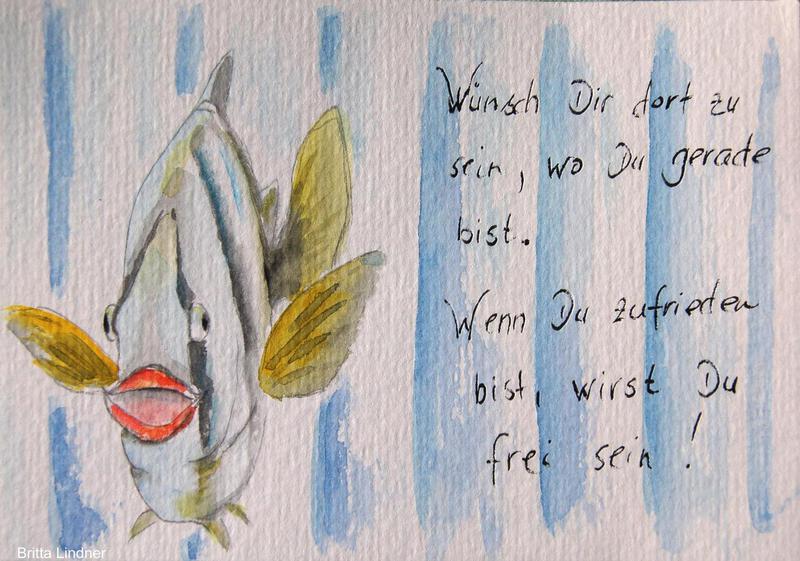 Wünsch Dir dort zu
sein, wo Du gerade
bist.
Wenn Du zufrieden
bist, wirst Du
frei sein!
Britta Lindner